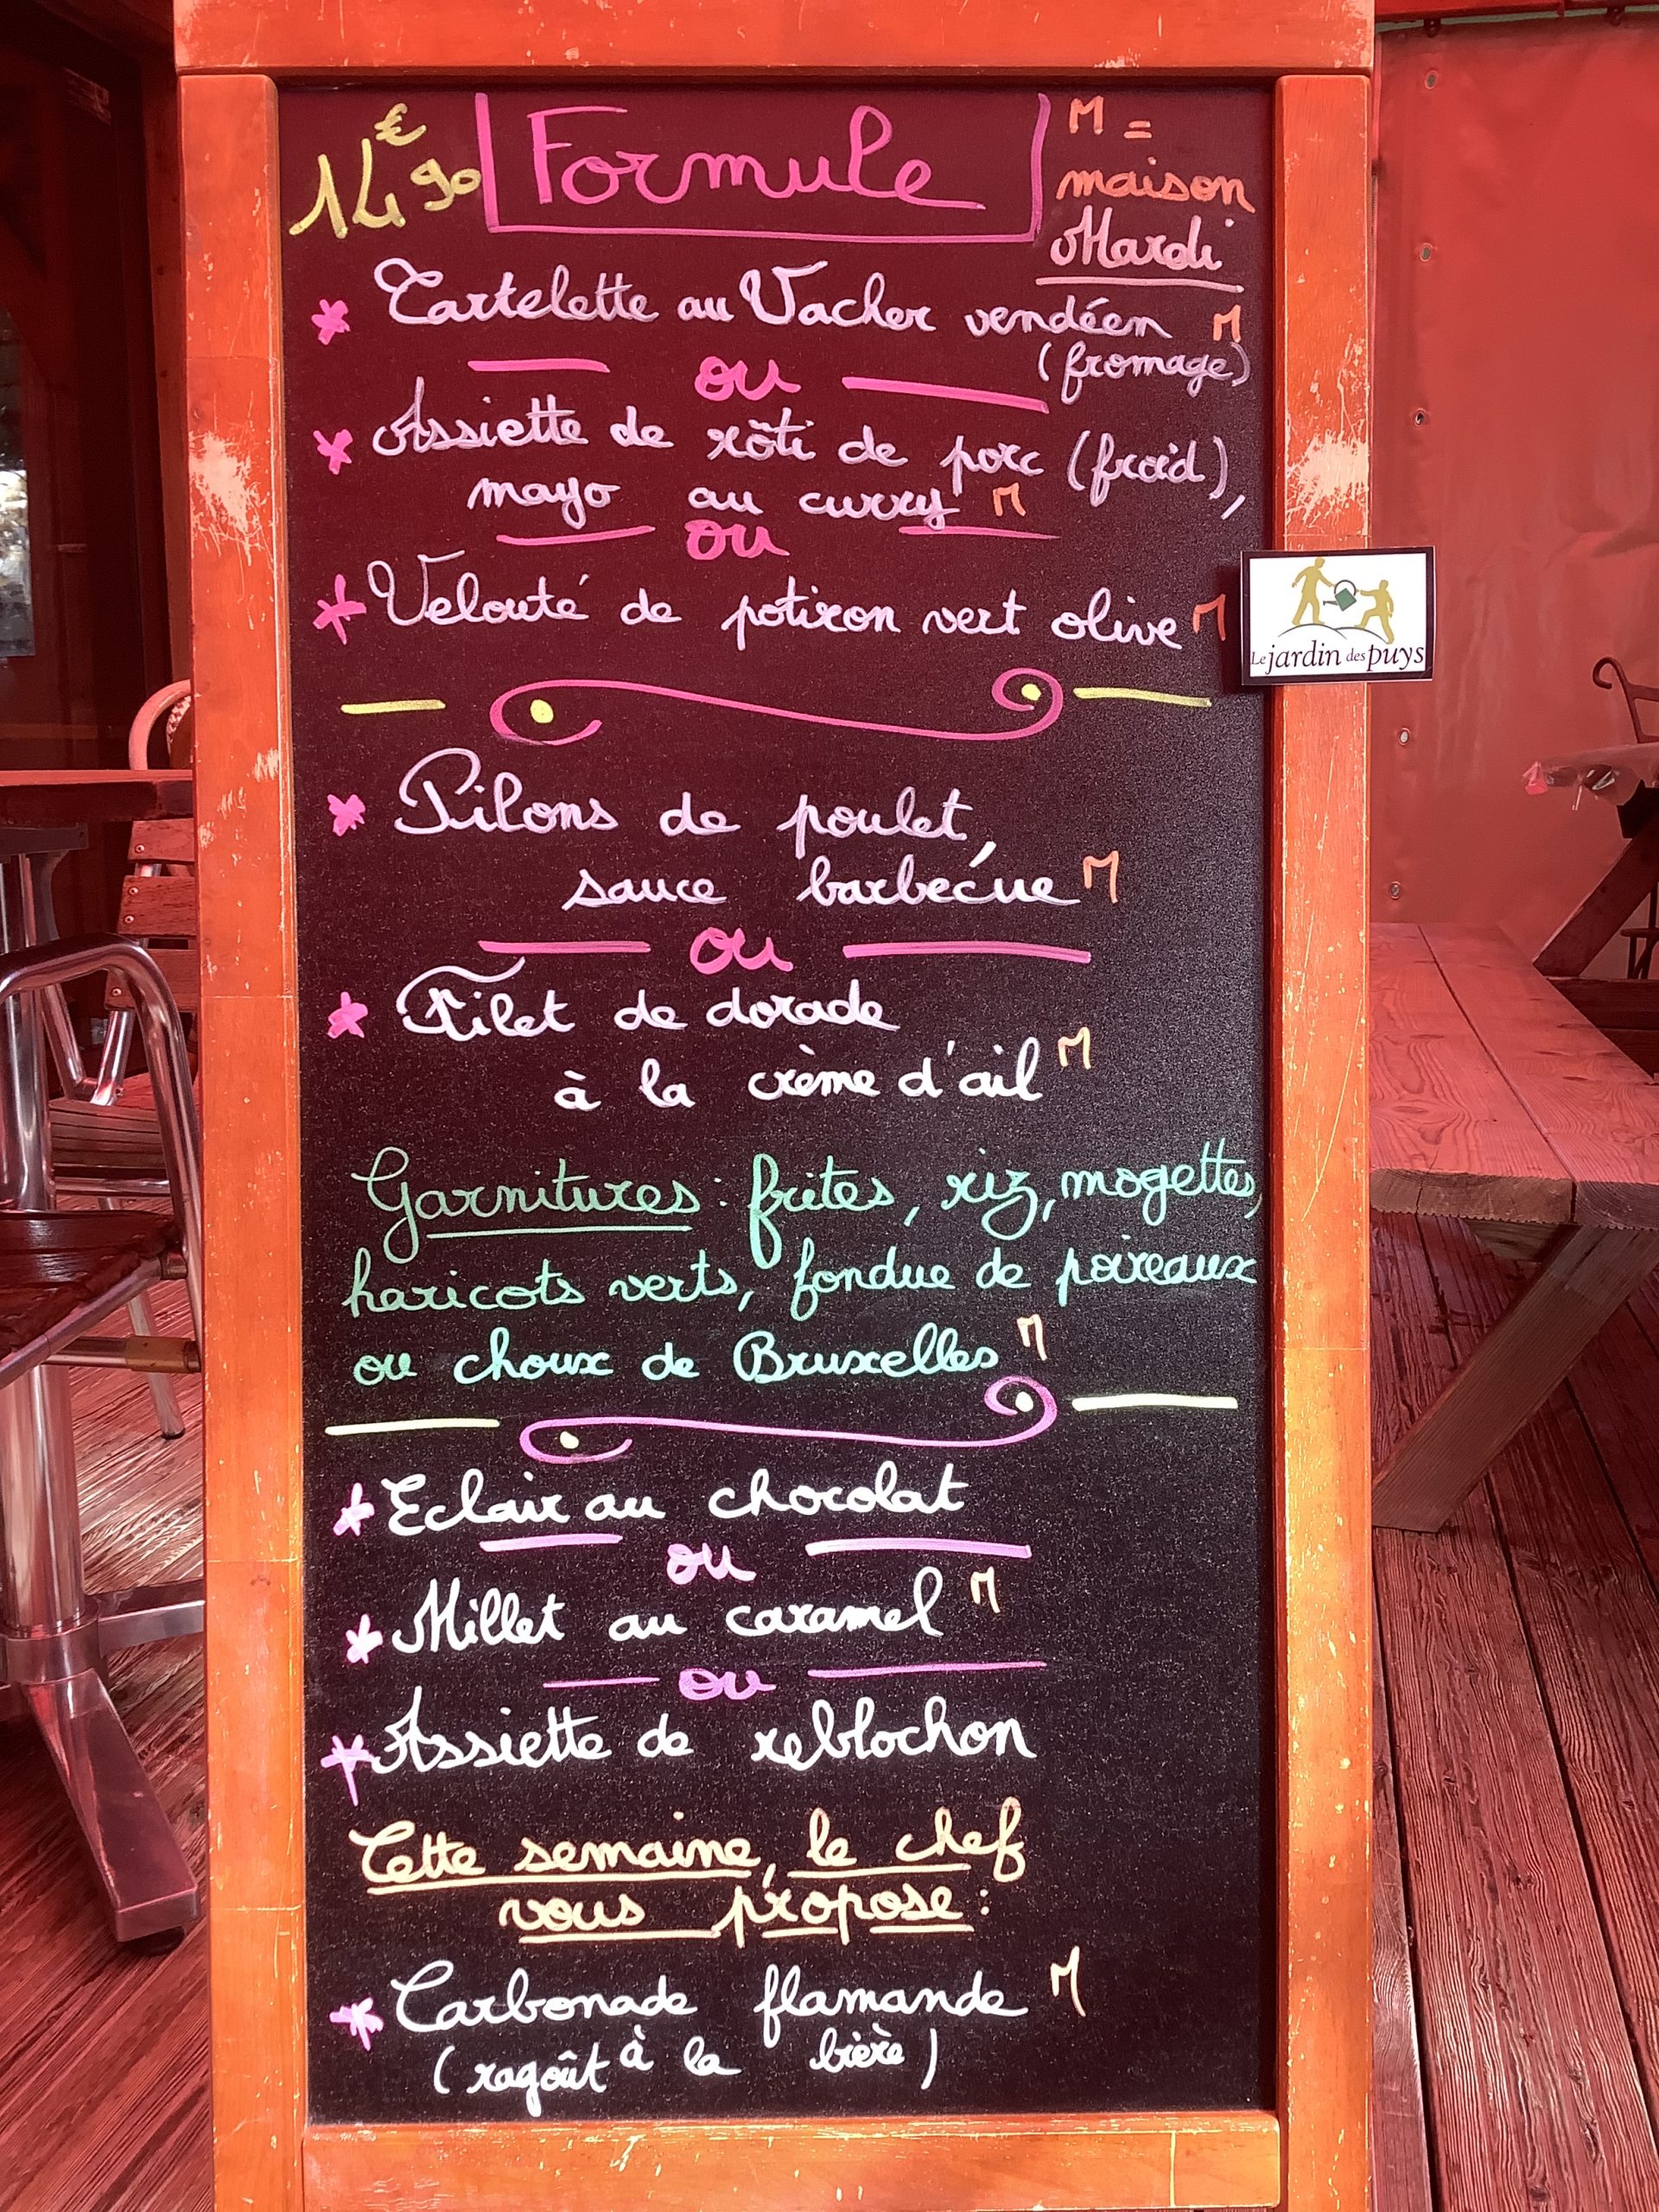 14€90 Formule M =
maison
Mardi
* Tartelette au Vacher vendéen M
(fromage)
ou
* Assiette de rôti de porc (froid),
mayo au curry M
ou
* Velouté de potiron vert olive M
Le jardin des puys
* Pilons de poulet,
sauce barbecue M
ou
* Filet de dorade
à la crème d'ail M
Garnitures : frites, riz, mogettes,
haricots verts, fondue de poireaux
ou choux de Bruxelles M
* Eclair au chocolat
ou
* Millet au caramel M
ou
* Assiette de reblochon
Cette semaine, le chef
vous propose :
* Carbonade flamande M
(ragoût à la bière)